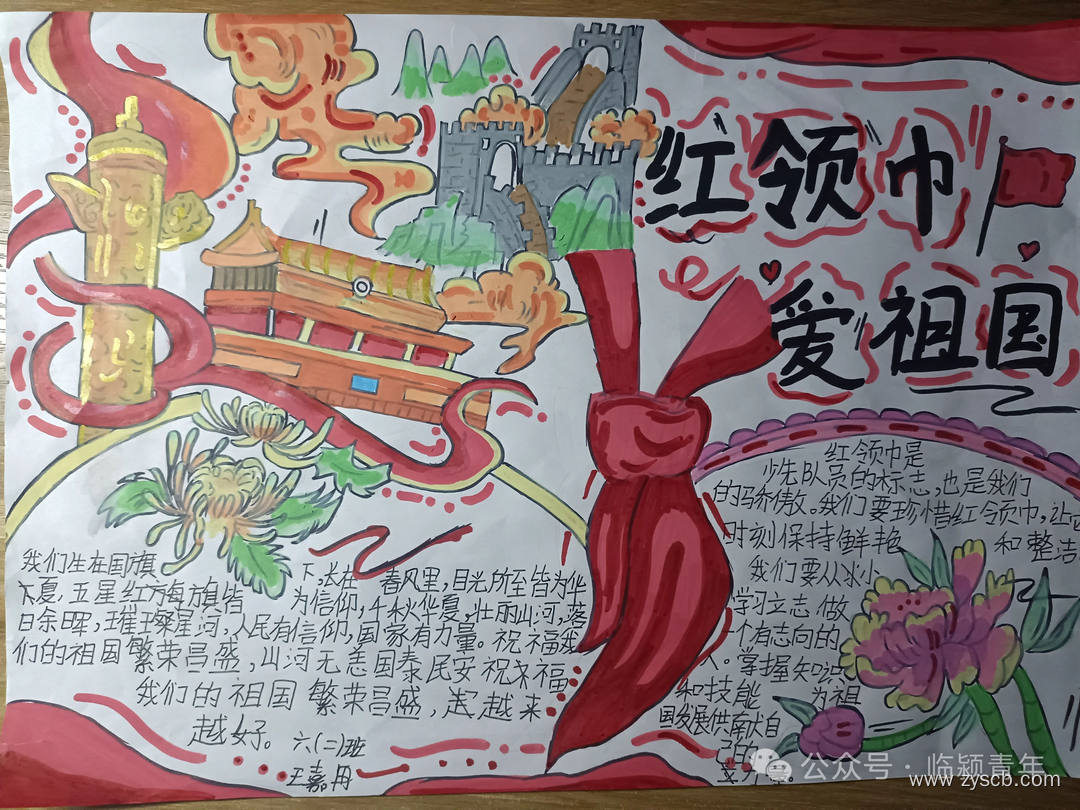 红领巾
爱祖国
我们生在国旗下,长在春风里,目光所至皆为华
夏,五星红旗皆为信仰,千秋华夏,壮丽山河,落
日余晖,璀璨星河,人民有信仰,国家有力量。祝福我
们的祖国繁荣昌盛,山河无恙国泰民安祝福
我们的祖国繁荣昌盛,越来
越好。
六(二)班
王嘉冉
红领巾是
少先队员的标志,也是我们
的骄傲。我们要珍惜红领巾,让它
时刻保持鲜艳和整洁
我们要从小
学习立志做
一个有志向的
人。掌握知识
和技能为祖
国发展供献自
己的
公众号·临颍青年
www.zyscb.com